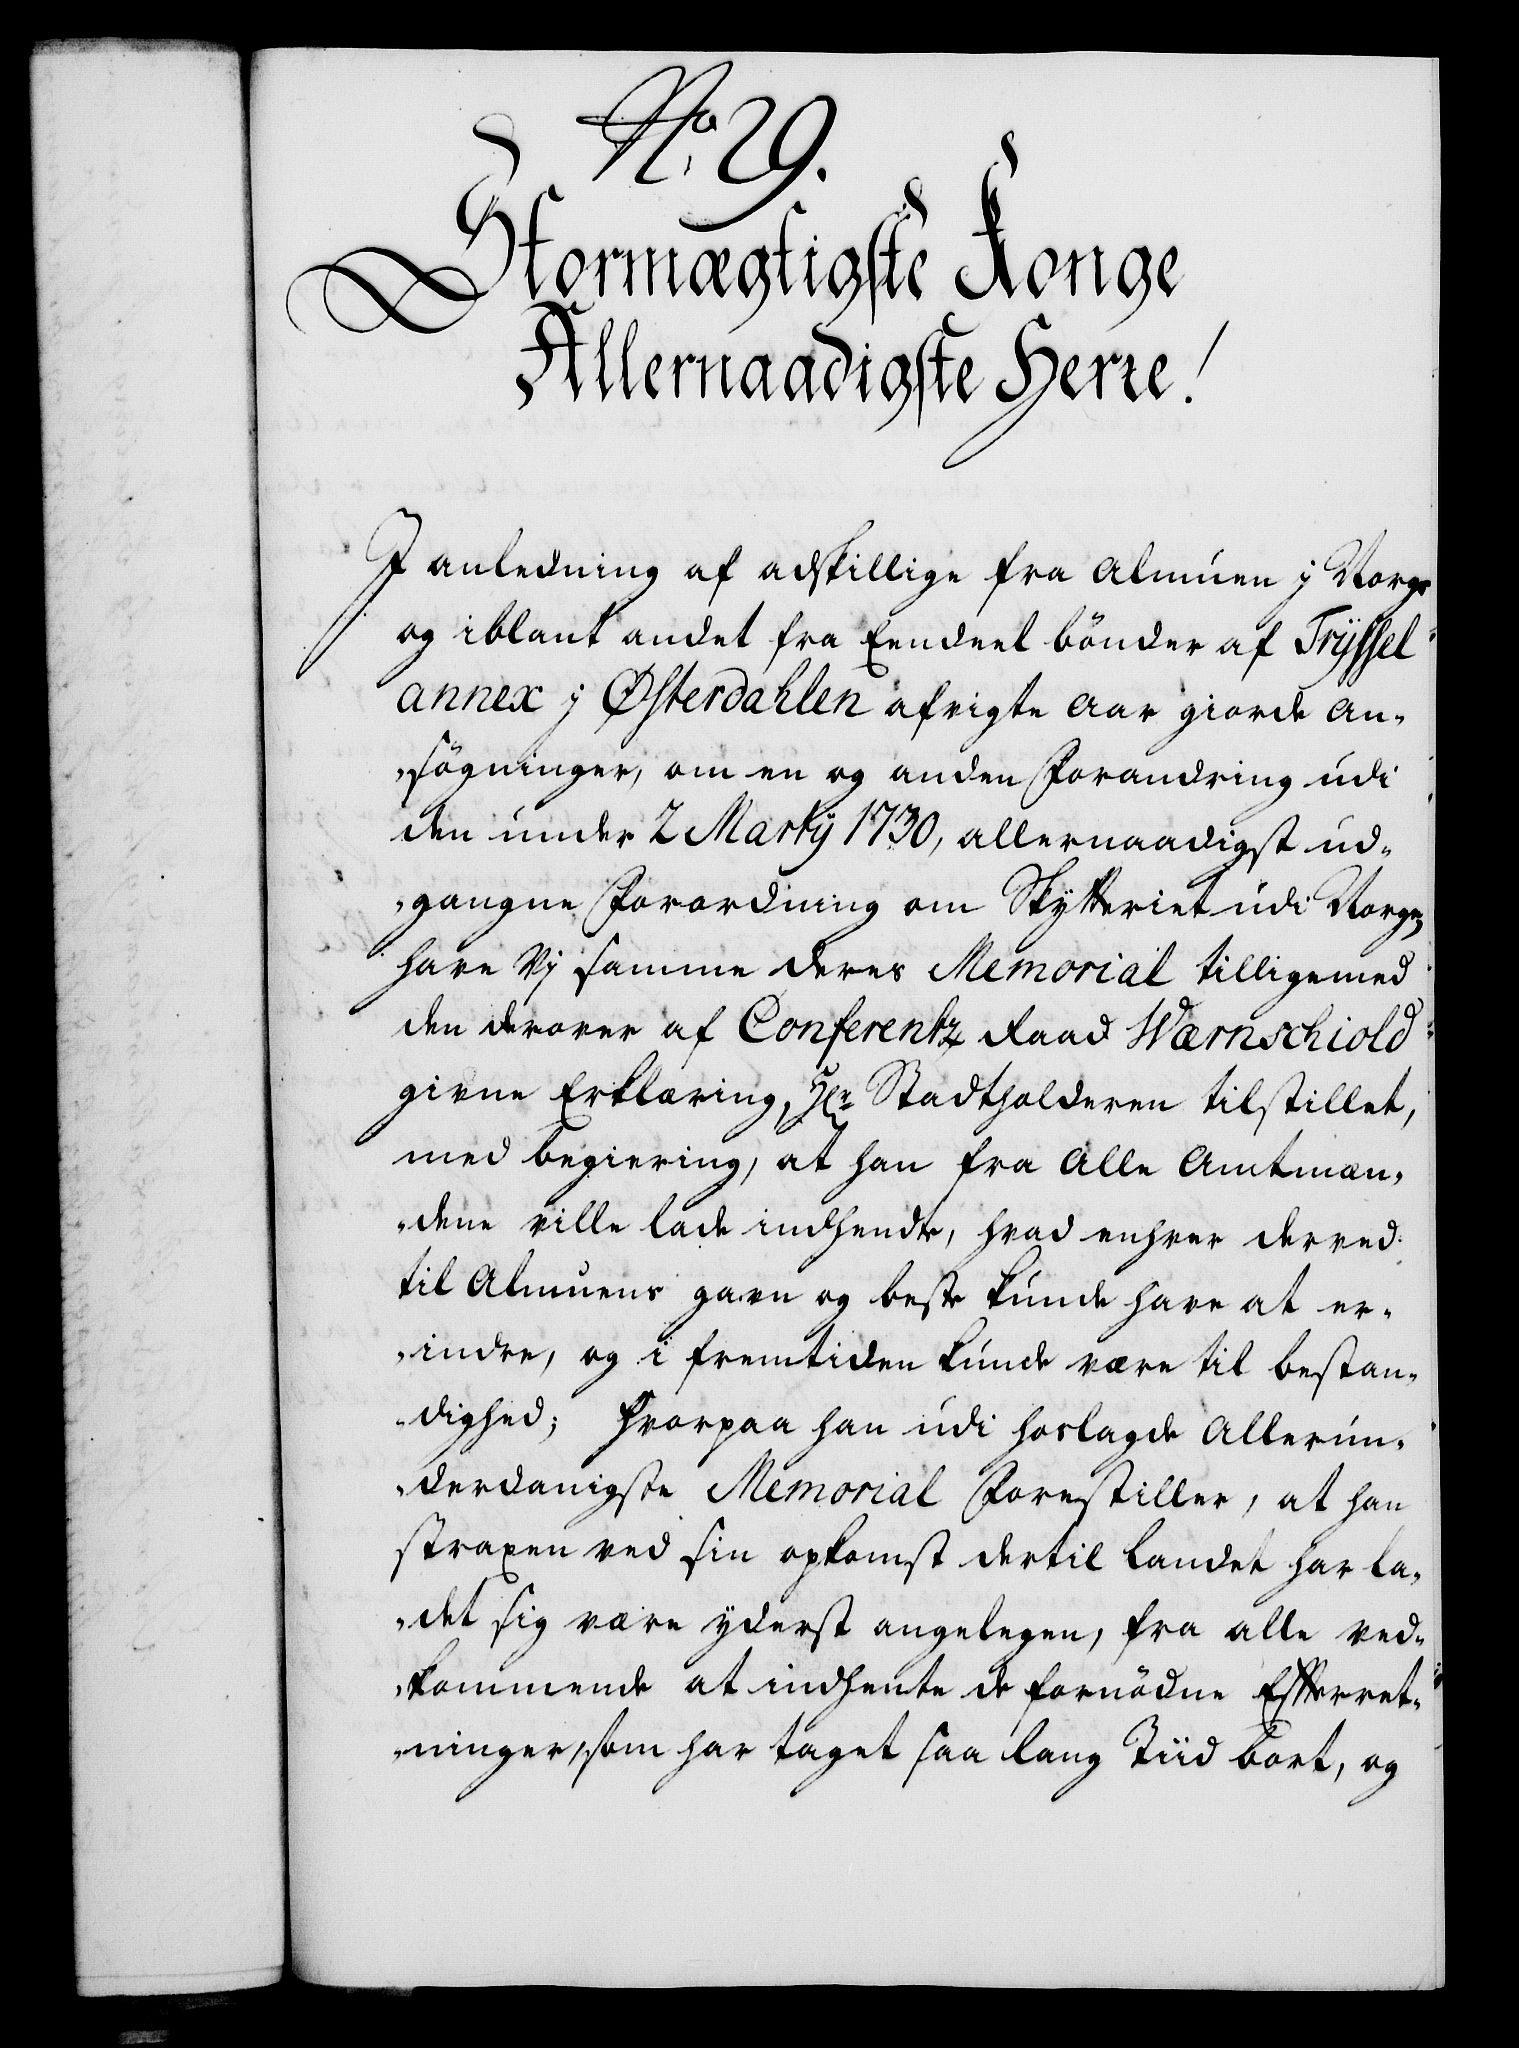 No. 29.
Stormægtigste Konge
Allernaadigste Herre!
I anledning af adskillige fra Almuen i Norge
og iblant andet fra Eendeel bönder af Tryssel
annex i Østerdahlen afvigte Aar giorde An-
-sögninger, om en og anden Forandring udi
den under 2 Martij 1730, allernaadigst ud-
-gangne Forordning om Skytteriet udi Norge,
have Vj samme deres Memorial tilligemed
den derover af Conferentz Raad Wærnschiold
givne Erklæring, Hr Stadtholderen tilstillet,
med begiering, at han fra Alle Amtmæn-
-dene ville lade indhendte, hvad enhver derved
til Almuens gavn og beste kunde have at er-
-indre, og i fremtiden kunde være til bestan-
-dighed; hvorpaa han udi hoslagde Allerun-
-derdanigste Memorial Forestiller, at han
straxen ved sin opkomst dertil Landet har la-
-det sig være yderst angelegen, fra alle ved-
-kommende at indhente de fornödne Efterret-
-ninger, som har taget saa lang Tiid bort, og